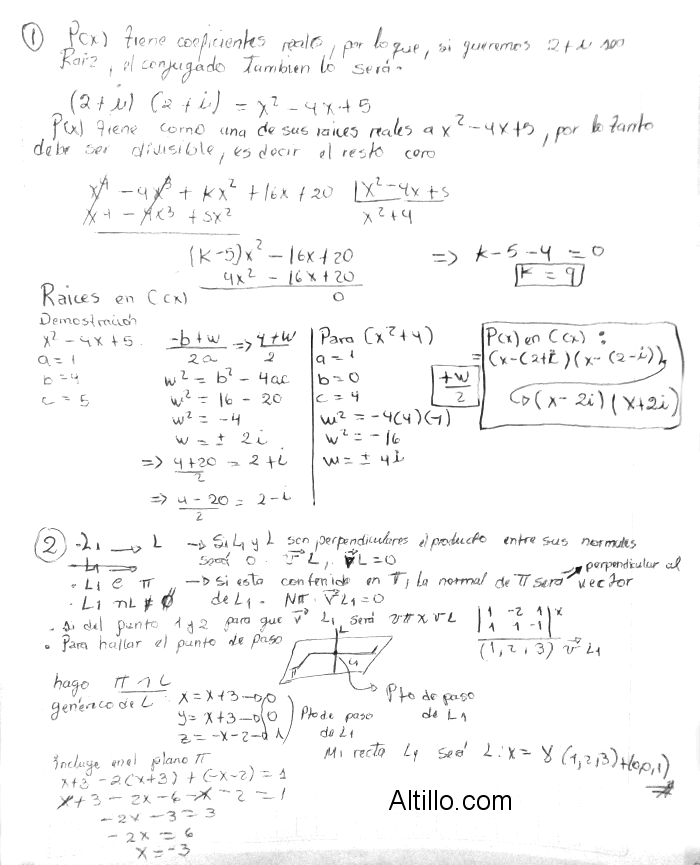 ① P(x) tiene coeficientes reales, por lo que, si queremos 2+i sea
Raiz, el conjugado tambien lo será.
(2+i) (2+i) = x² - 4x + 5
P(x) tiene como una de sus raices reales a x² - 4x + 5, por lo tanto
debe ser divisible, es decir el resto cero
x⁴ - 4x³ + kx² + 16x + 20 | x² - 4x + 5
x⁴ - 4x³ + 5x² x² + 4
(k-5)x² - 16x + 20 => k - 5 - 4 = 0
4x² - 16x + 20 k = 9
0
Raices en C(x)
Demostración
x² - 4x + 5.
a = 1
b = 4
c = 5
-b+w/2a => 4+w/2
w² = b² - 4ac
w² = 16 - 20
w² = -4
w = ± 2i
=> 4+20/2 = 2+i
=> 4-20/2 = 2-i
Para (x²+4)
a = 1
b = 0
c = 4
w² = -4(4)(-1)
w² = -16
w = ± 4i
= +w/2
P(x) en C(x) :
(x-(2+i)(x-(2-i)),
(x-2i)(x+2i)
② - L₁ → L → Si L₁ y L son perpendiculares el producto entre sus normales
será 0. vL₁ vL = 0
· L₁ e π → Si esta contenido en π, la normal de π será perpendicular al
vector
· L₁ ∩ L ≠ ø de L₁. Nπ . vL₁ = 0
· Si del punto 1 y 2 para que v L₁ será vπ x vL | 1 -2 1 | x
| 1 1 -1 |
· Para hallar el punto de paso (1, 2, 3) v L₁
L
L₁
π
hago π ∩ L Pto de paso
de L₁
generico de L: x = x+3 → 0
y = x+3 → 0
z = -x-2 → 1
Pto de paso
de L₁
Mi recta L₁ será L: x = γ (1,2,3) + (0,0,1)
Incluye en el plano π
x+3 - 2(x+3) + (-x-2) = 1
x+3 - 2x - 6 - x - 2 = 1
-2x - 3 = 3
-2x = 6
x = -3
Altillo.com